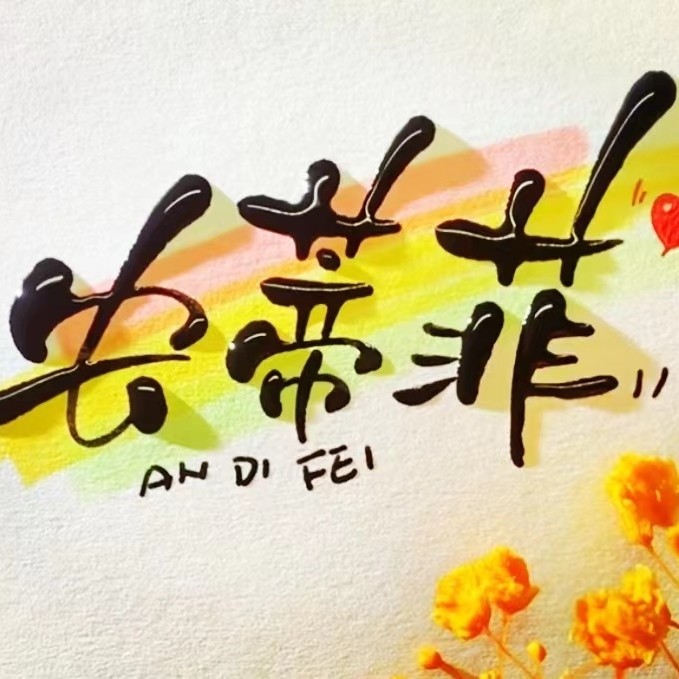 安蒂菲
AN DI FEI